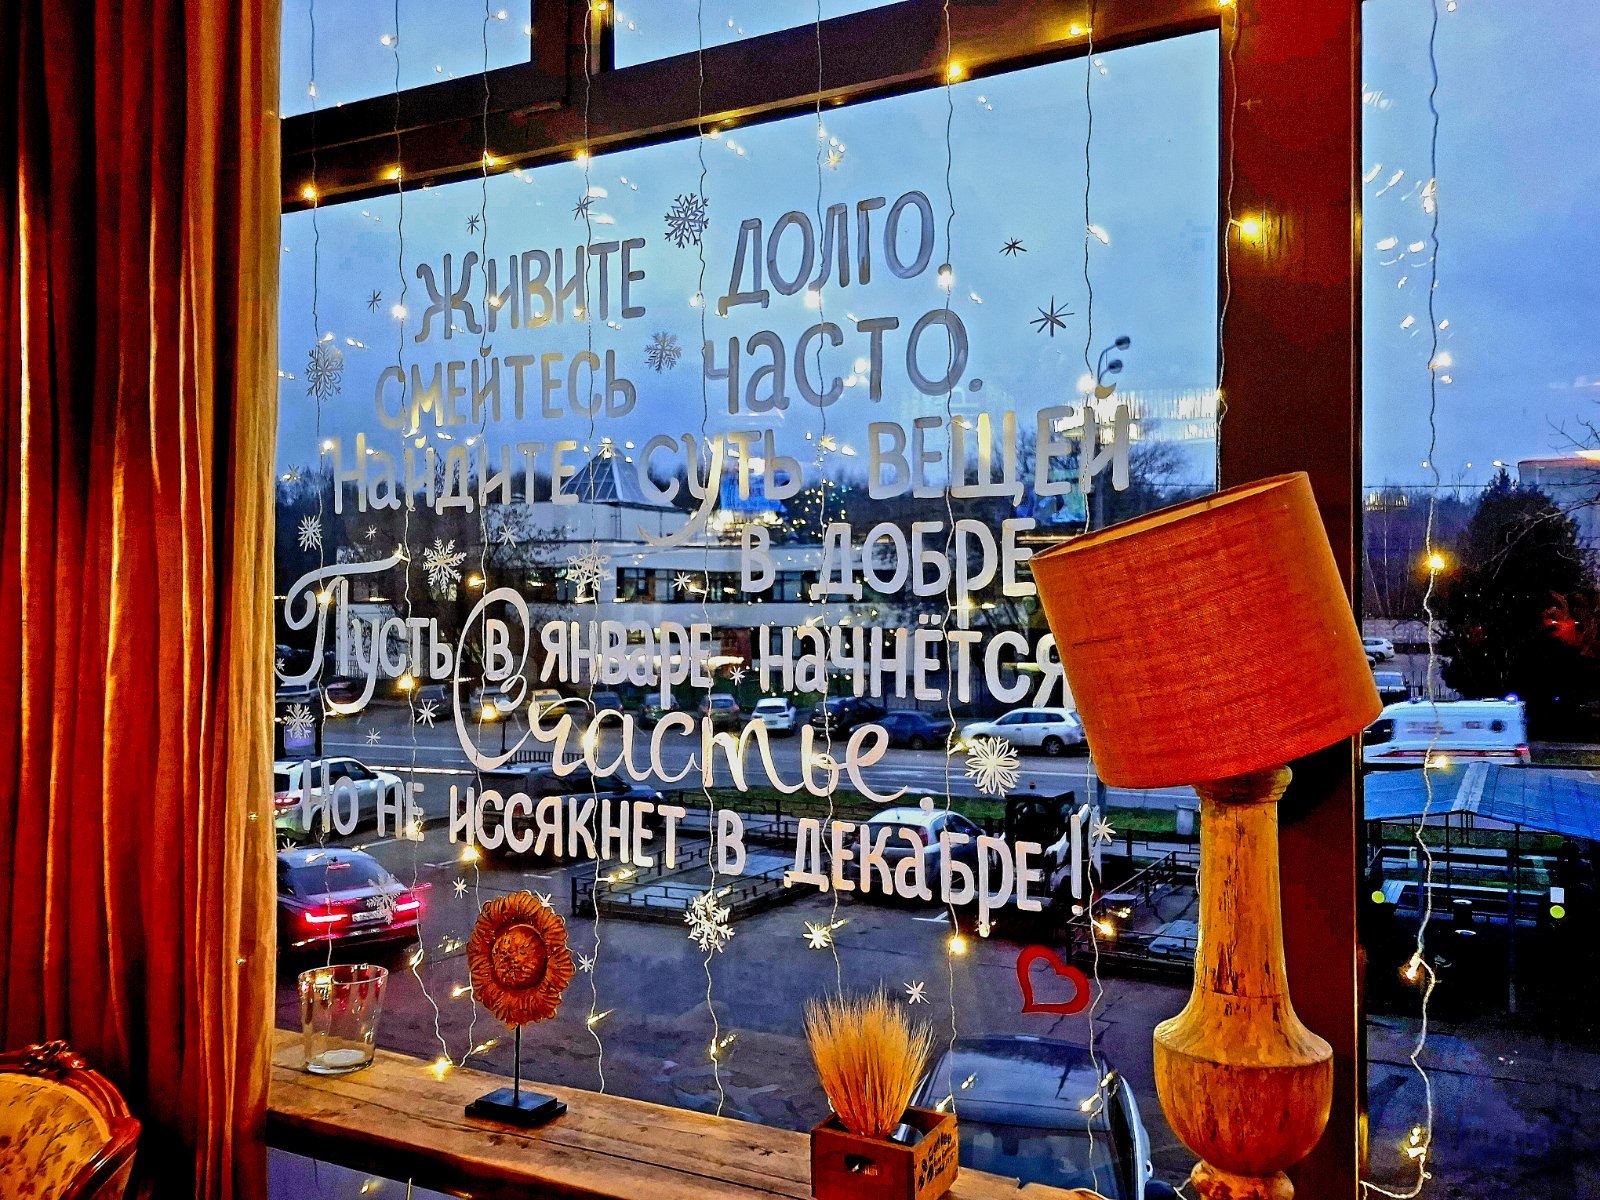 Живите долго,
смейтесь часто.
Найдите суть вещей
в добре
Пусть в январе начнётся
Счастье,
Но не иссякнет в декабре!